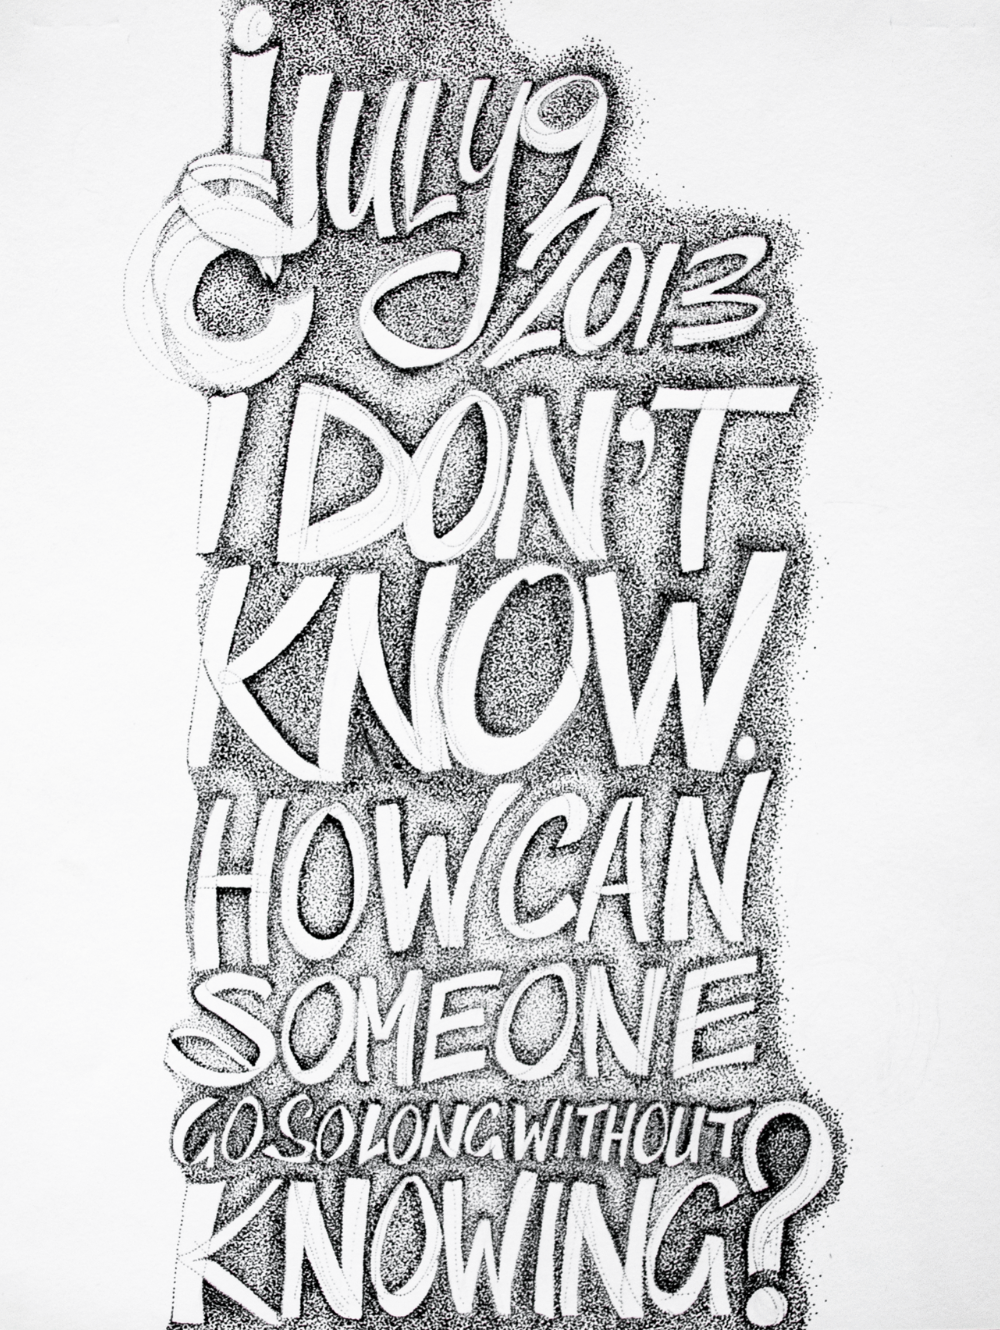 JULY 9
2013
I DON'T
KNOW.
HOW CAN
SOMEONE
GO SO LONG WITHOUT
KNOWING?